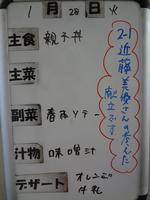 1月28日火
2-1近藤美優さんの考えた
献立です
主食 親子丼
主菜
副菜 春雨ソテー
汁物 味噌汁
デザート オレンジ
牛乳